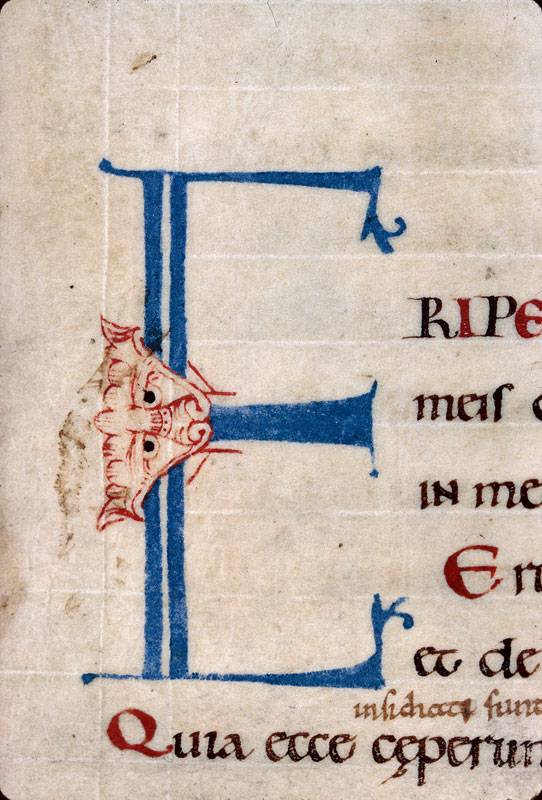 E
RIPE
meis
IN me
Er
et de
insidiati sunt
Quia ecce cęperun